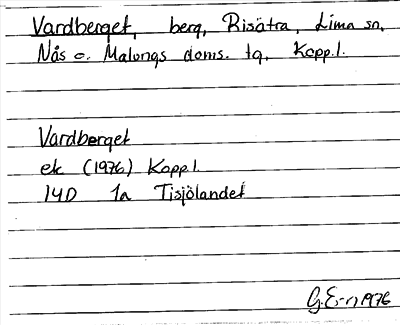 Vardberget, berg, Risätra, Lima sn,
Nås o. Malungs doms. tg, Kopp.l.
Vardberget
ek (1976) Kopp.l.
14D 1a Tisjölandet
1976